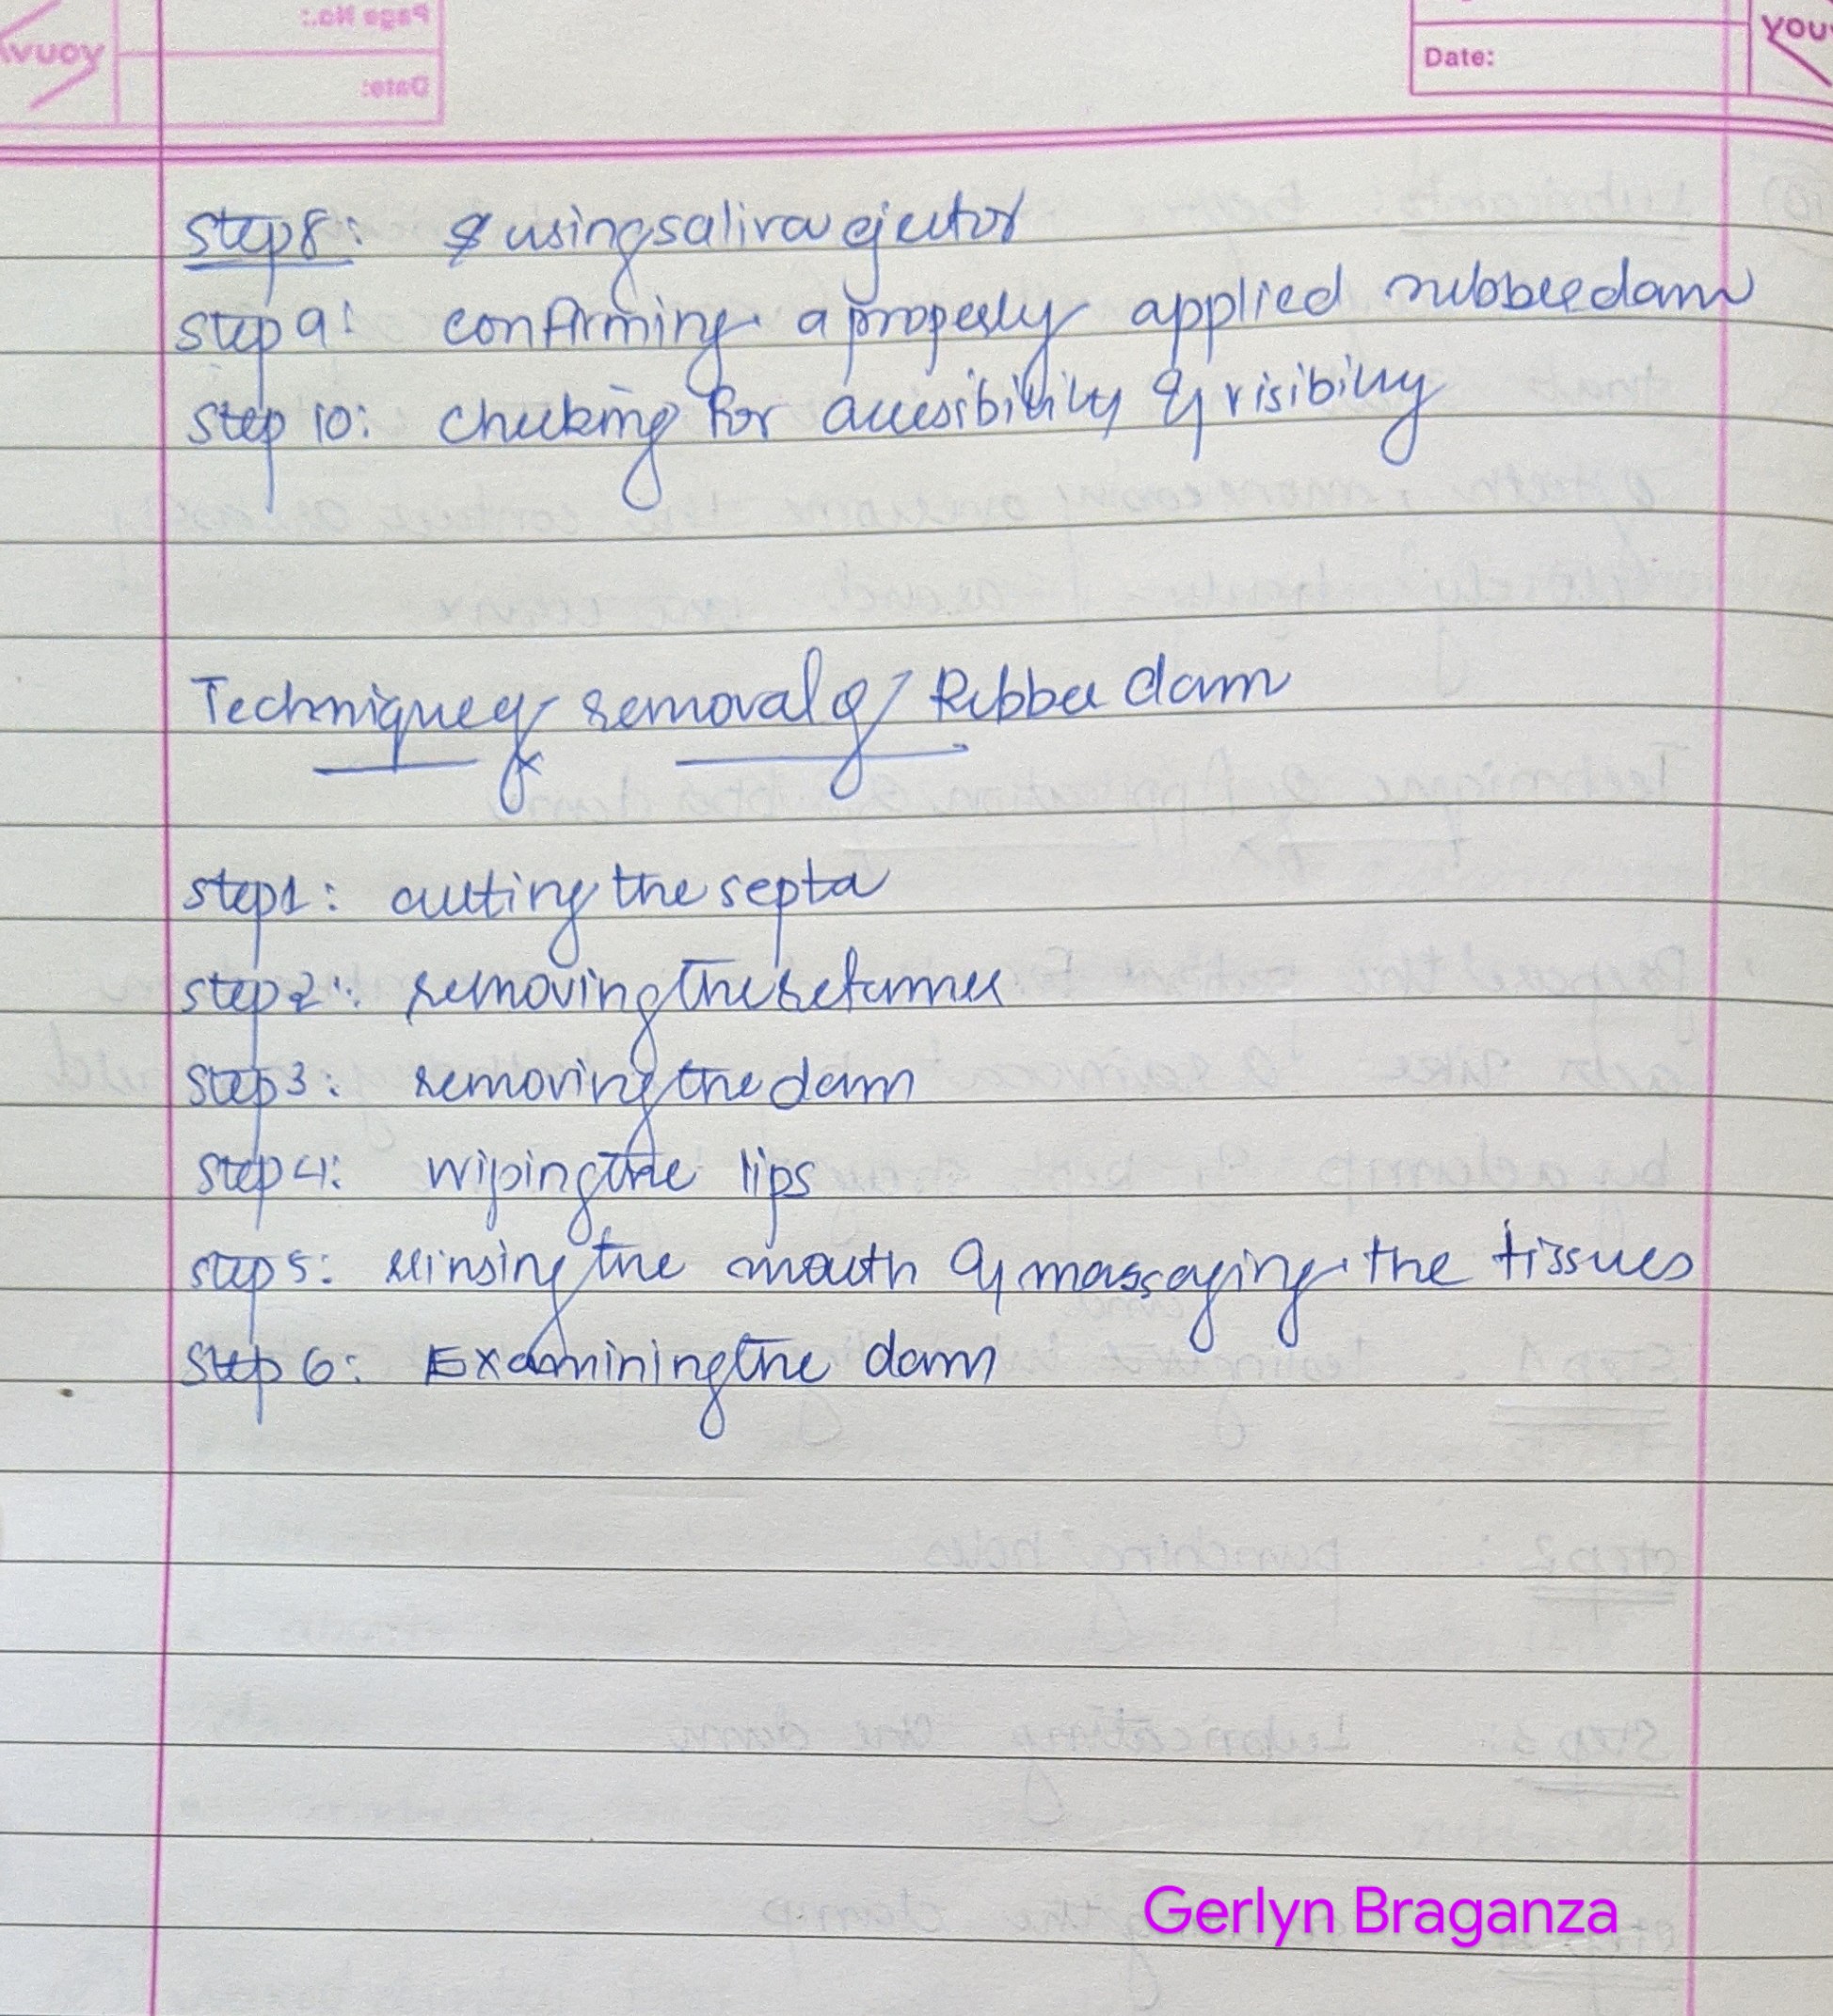 Date:
step 8: using saliva ejector
step 9: confirming a properly applied rubber dam
step 10: checking for accesibility & visibility
Technique of removal of Rubber dam
step 1: cutting the septa
step 2: removing the retainer
step 3: removing the dam
step 4: wiping the lips
step 5: rinsing the mouth & massaging the tissues
step 6: Examining the dam
Gerlyn Braganza